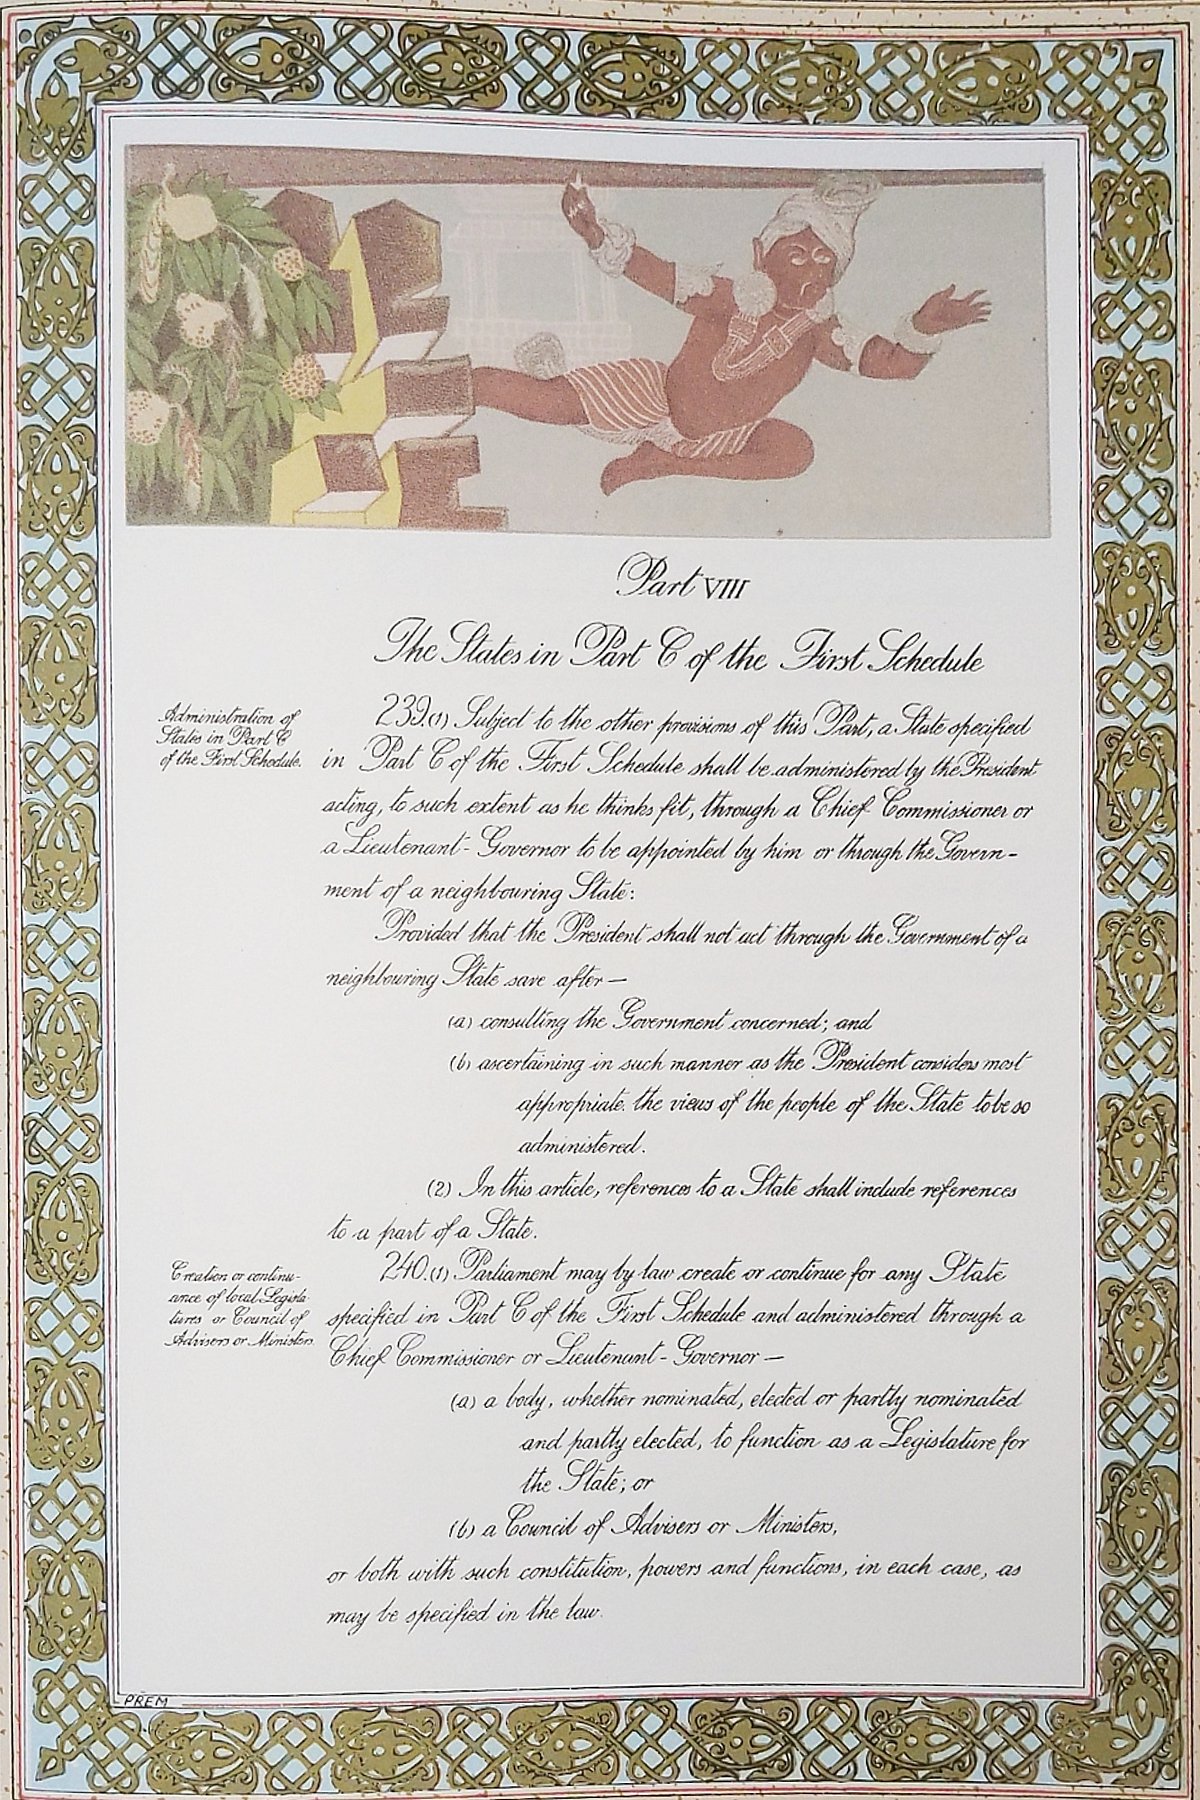 Part VIII
The States in Part C of the First Schedule
Administration of
States in Part C
of the First Schedule.
239.(1) Subject to the other provisions of this Part, a State specified
in Part C of the First Schedule shall be administered by the President
acting, to such extent as he thinks fit, through a Chief Commissioner or
a Lieutenant-Governor to be appointed by him or through the Govern-
ment of a neighbouring State:
Provided that the President shall not act through the Government of a
neighbouring State save after—
(a) consulting the Government concerned; and
(b) ascertaining in such manner as the President considers most
appropriate. the views of the people of the State to be so
administered.
(2) In this article, references to a State shall include references
to a part of a State.
Creation or continu-
ance of local Legisla-
tures or Council of
Advisers or Ministers.
240.(1) Parliament may by law create or continue for any State
specified in Part C of the First Schedule and administered through a
Chief Commissioner or Lieutenant-Governor—
(a) a body, whether nominated, elected or partly nominated
and partly elected, to function as a Legislature for
the State; or
(b) a Council of Advisers or Ministers,
or both with such constitution, powers and functions, in each case, as
may be specified in the law.
PREM